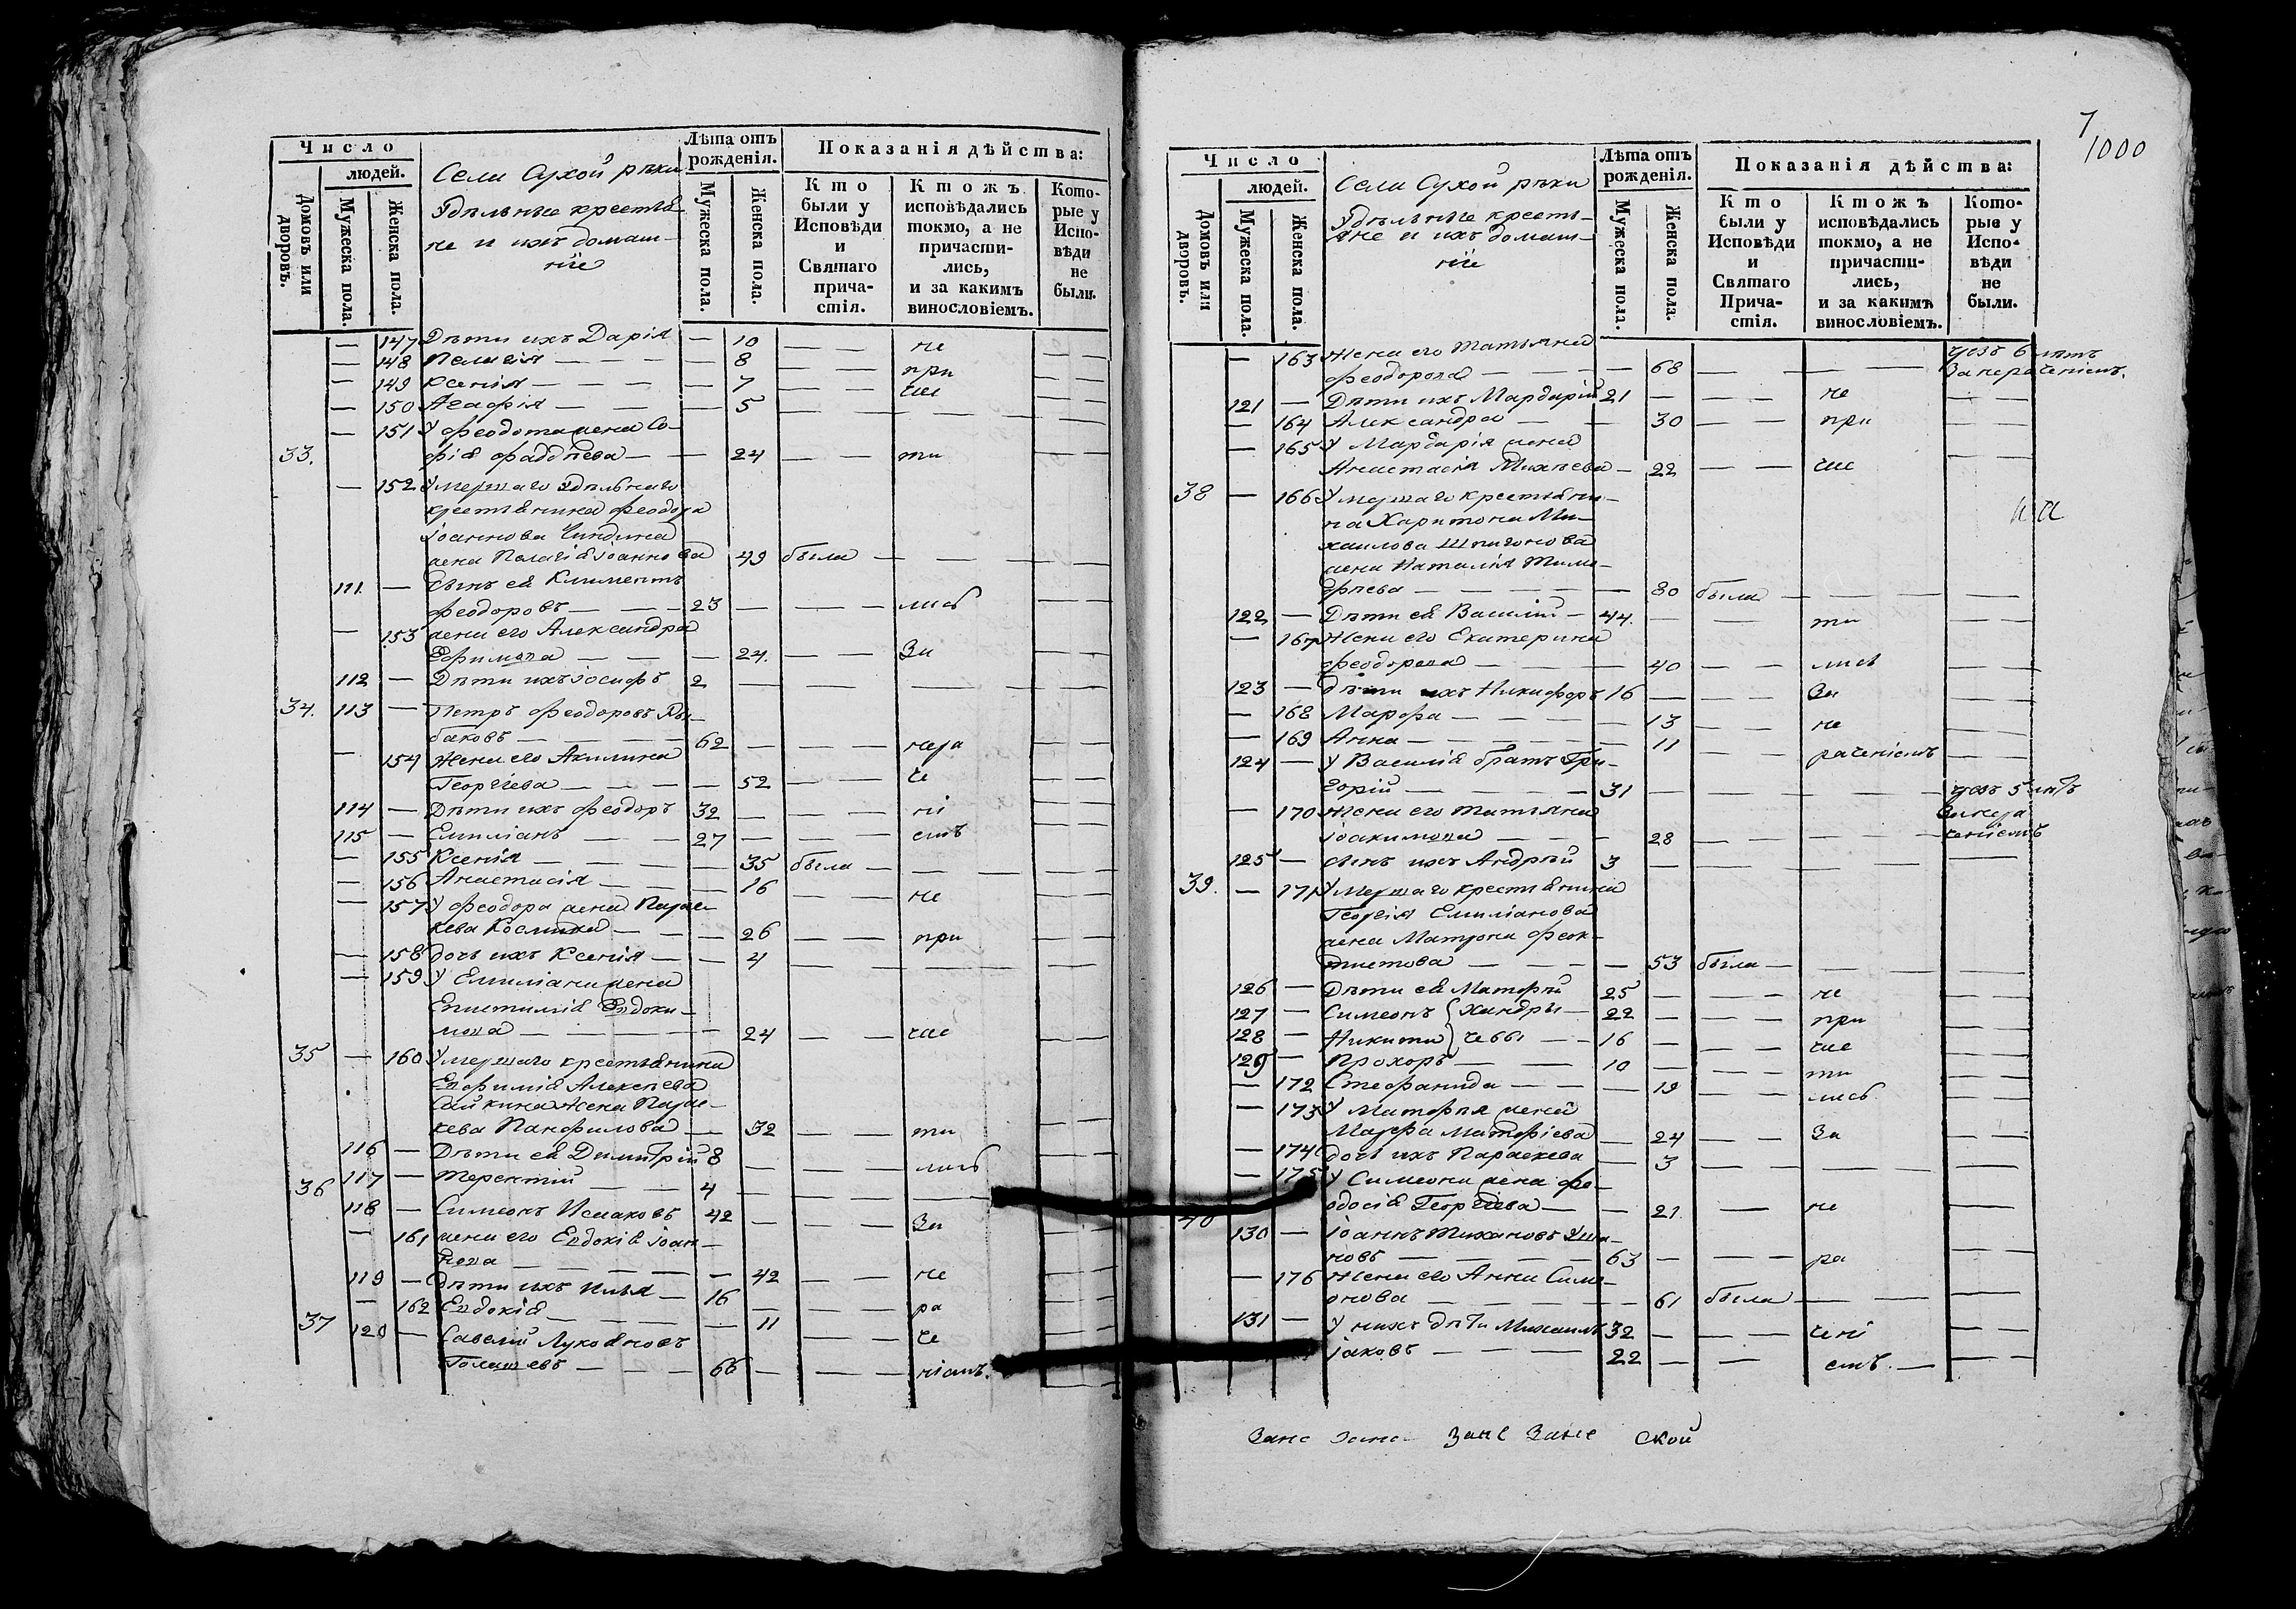 Число
людей.
Домовъ или дворовъ.
Мужеска пола.
Женска пола.
Села Сухой рѣки
Удѣльные крестья-
не и ихъ домаш-
ніе
Лѣта отъ рожденія.
Мужеска пола.
Женска пола.
Показанія дѣйства:
Кто были у Исповѣди и Святаго причастія.
Ктожъ исповѣдались токмо, а не причасти-лись, и за какимъ винословіемъ.
Кото-рые у Испо-вѣди не были.
— 147 Дѣти ихъ Дарія — 10 — — не — —
— 148 Пелагія — — — — 8 — — при — —
— 149 Ксенія — — — — 7 — — час — —
— 150 Агафія — — — 5 — — — — —
— 151 У Феодота жена Со-
33. фія Фаддѣева — — 24 — — ти — —
— 152 Умершаго удѣльнаго
крестьянина Феодора
Іоаннова Чиндина
жена Пелагія Іоаннова 49 была — — — — —
111. — Сынъ ея Климентъ
Феодоровъ — — — 23 — — — лись — —
— 153 жена его Александра
Ефимова — — — 24. — — За — —
112 — Дѣти ихъ Іосифъ 2 — — — — — —
34. 113 — Петръ Феодоровъ Ры-
баковъ — — — — 62 — — — нера — —
— 154 Жена его Акилина
Георгіева — — — — 52 — — че — —
114 — Дѣти ихъ Феодоръ 32 — — — ні — —
115 — Емиліанъ — — — 27 — — — емъ — —
— 155 Ксенія — — — — 35 была — — — — —
— 156 Анастасія — — — — 16 — — не — —
— 157 У Феодора жена Парас-
кева Космина — — — 26 — — при — —
— 158 дочь ихъ Ксенія — — 4 — — — — —
— 159 У Емиліана жена
Епистимія Евдоки-
мова — — — — 24 — — час — —
35 — 160 Умершаго крестьянина
Евфимія Алексѣева
Сайкина Жена Парас-
кева Панфилова — 32 — — ти — —
116 — Дѣти ея Димитрій 8 — — — лись — —
117 — Терентій — — 4 — — — —
36 118 — Симеонъ Исаковъ 42 — — — За — —
— 161 жена его Евдокія Іоан-
нова — — — — 42 — — не — —
119 — дѣти ихъ Илья — 16 — — — ра — —
— 162 Евдокія — — — — 11 — — че — —
37 120 — Савелій Лукояновъ
Голышевъ — — — 66 — — — ніемъ. — —
7
1000
Число
людей.
Домовъ или дворовъ.
Мужеска пола.
Женска пола.
Села Сухой рѣки
Удѣльные кресть-
яне и ихъ домаш-
ніе
Лѣта отъ рожденія.
Мужеска пола.
Женска пола.
Показанія дѣйства:
Кто были у Исповѣди и Святаго Прича-стія.
Ктожъ исповѣдались токмо, а не причасти-лись, и за какимъ винословіемъ.
Кото-рые у Испо-вѣди не были.
— 163 Жена его Татьяна
Феодорова — — — 68 — — — — чрезъ 6 лѣтъ
За нераченіемъ.
121 — Дѣти ихъ Мардарій 21 — — — не — —
— 164 Александра — — 30 — — при — —
— 165 У Мардарія жена
Анастасія Михѣева — 22 — — час — —
38 — 166 Умершаго крестьяни-
на Харитона Ми-
хаилова Шпигонова
жена Наталія Тимо-
фѣева — — — — 80 была — — — —
122 — Дѣти ея Василій — 44. — — — ти — —
— 167 Жена его Екатерина
Феодорова — — — 40 — — лись — —
123 — дѣти ихъ Никифоръ 16 — — — За — —
— 168 Марфа — — — — 13 — — не — —
— 169 Анна — — — — 11 — — раченіемъ — —
124 — У Василія братъ Гри-
горій — — — — 31 — — — — — чрезъ 5 лѣтъ
— 170 Жена его Татьяна За нера
Іоакимова — — — 28 — — — — ченіемъ
125 — сынъ ихъ Андрѣй 3 — — — — —
39. — 171 Умершаго крестьянина
Георгія Емиліанова
жена Матрона Феок-
тистова — — — — 53 была — — — —
126 — Дѣти ея Матфѣй 25 — — — не — —
127 — Симеонъ { Хандры — 22 — — — при — —
128 — Никита } чевы — — 16 — — — час — —
129 — Прохоръ — — 10 — — — ти — —
— 172 Стефанида — — — 19 — — лись — —
— 173 У Матфѣя жена
Марфа Матфіева — 24 — — За — —
— 174 дочь ихъ Параскева — 3 — — — — —
— 175 У Симеона жена Фе-
одосія Георгіева — — 21. — не —
40 130 — Іоаннъ Тихановъ Уша-
новъ — — — 63 — — — ра — —
— 176 Жена его Анна Симе-
онова — — — — 61 была — — —
131 — У нихъ дѣти Михаилъ 32 — — — чені — —
Іаковъ — — — 22 — — емъ. — — —
Зане Зане Зане Зане ской